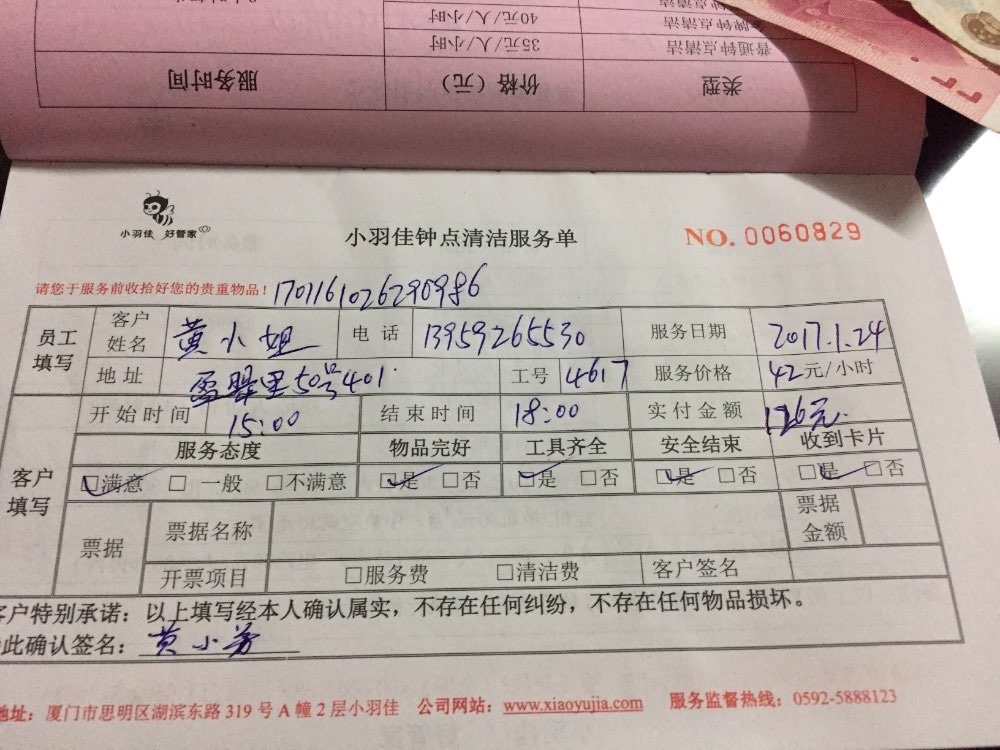 类型 价格（元） 服务时间
普通钟点清洁 35元/人/小时
40元/人/小时
小羽佳 好管家
小羽佳钟点清洁服务单
NO. 0060829
请您于服务前收拾好您的贵重物品！
1701161026290986
员工填写 客户姓名 黄小姐 电话 13959265530 服务日期 2017.1.24
地址 盈翠里50号401 工号 4617 服务价格 42元/小时
客户填写 开始时间 15:00 结束时间 18:00 实付金额 126元
服务态度 物品完好 工具齐全 安全结束 收到卡片
☑满意 □一般 □不满意 ☑是 □否 ☑是 □否 ☑是 □否 □是 ☑否
票据 票据名称 票据金额
开票项目 □服务费 □清洁费 客户签名
客户特别承诺：以上填写经本人确认属实，不存在任何纠纷，不存在任何物品损坏。
此确认签名：黄小芳
地址：厦门市思明区湖滨东路 319 号 A 幢 2 层小羽佳 公司网站：www.xiaoyujia.com 服务监督热线：0592-5888123